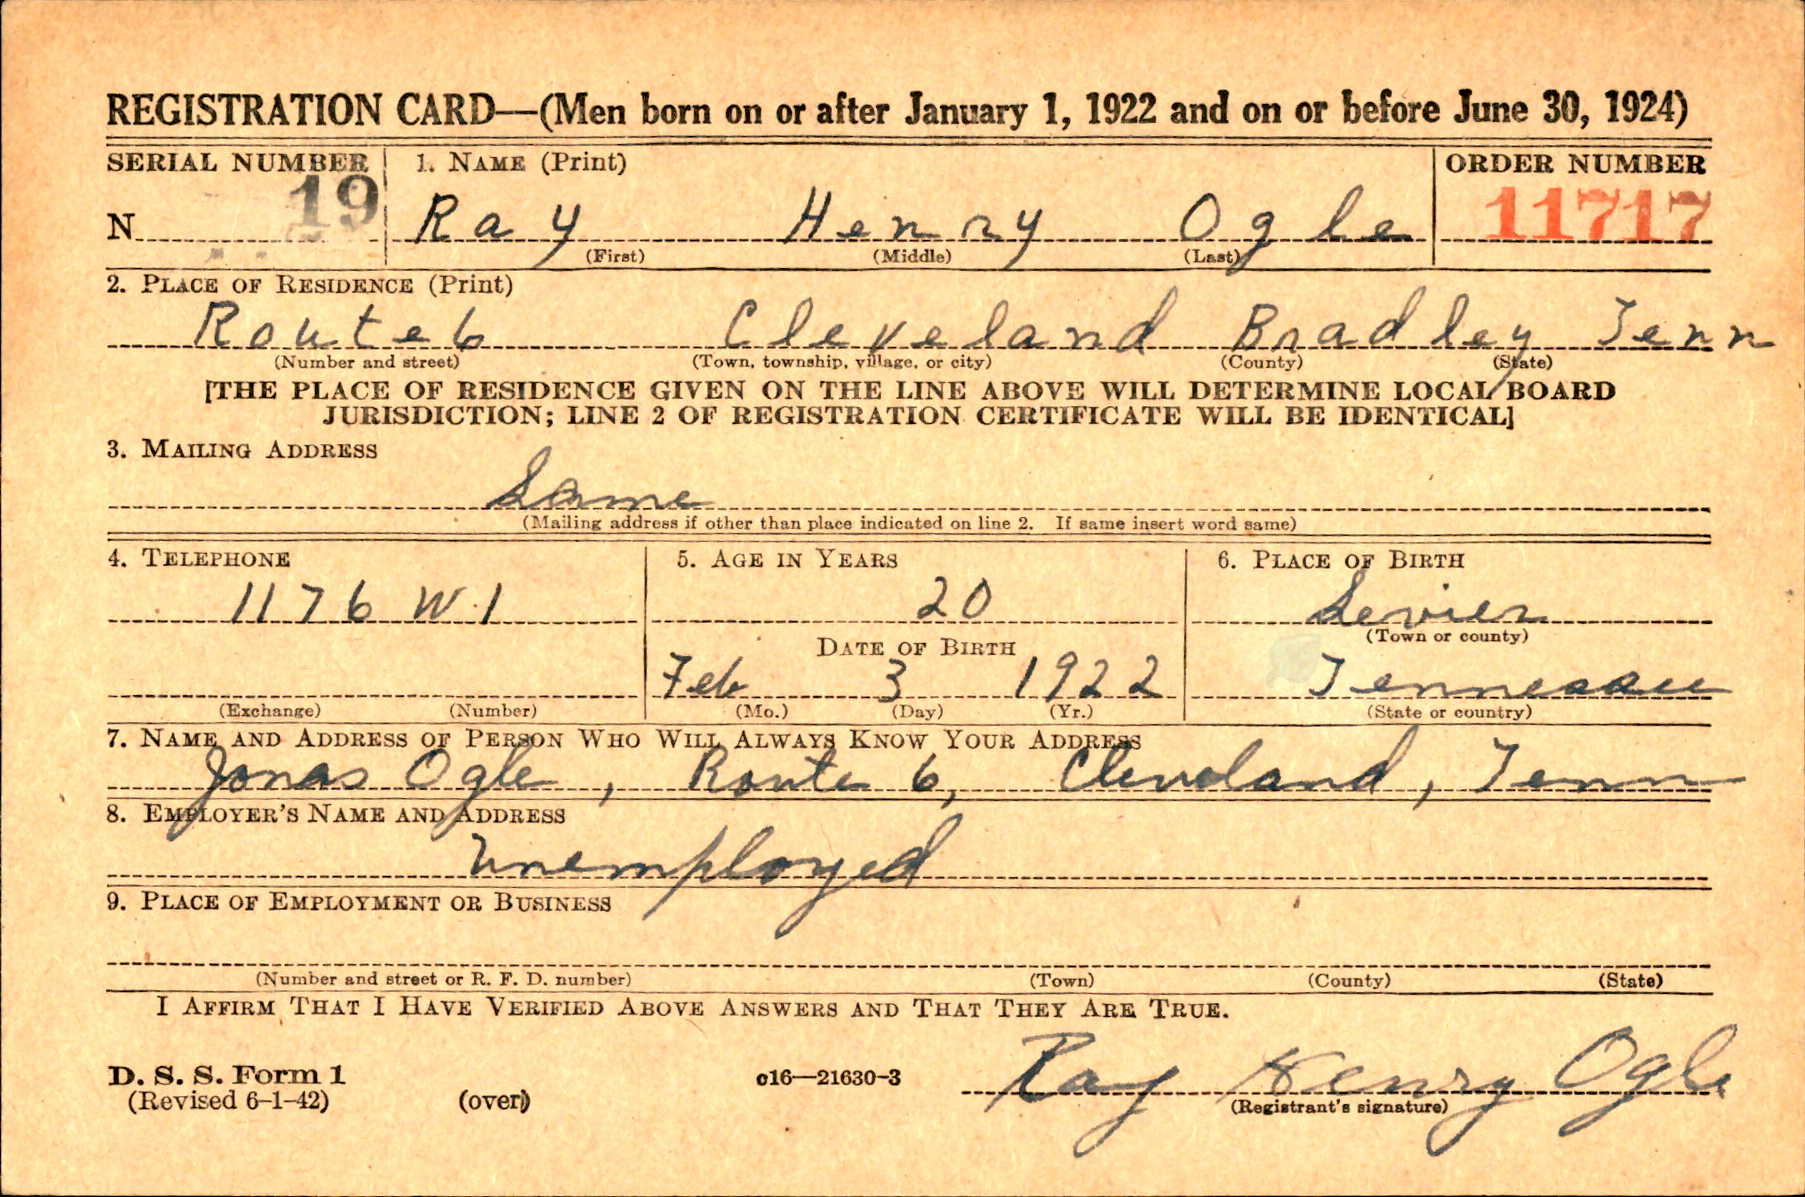 REGISTRATION CARD—(Men born on or after January 1, 1922 and on or before June 30, 1924)
SERIAL NUMBER 1. NAME (Print) ORDER NUMBER
N 19 Ray Henry Ogle 11717
(First) (Middle) (Last)
2. PLACE OF RESIDENCE (Print)
Route 6 Cleveland Bradley Tenn
(Number and street) (Town, township, village, or city) (County) (State)
[THE PLACE OF RESIDENCE GIVEN ON THE LINE ABOVE WILL DETERMINE LOCAL BOARD
JURISDICTION; LINE 2 OF REGISTRATION CERTIFICATE WILL BE IDENTICAL]
3. MAILING ADDRESS
Same
(Mailing address if other than place indicated on line 2. If same insert word same)
4. TELEPHONE 5. AGE IN YEARS 6. PLACE OF BIRTH
1176 W 1 20 Sevier
(Town or county)
DATE OF BIRTH
Feb 3 1922 Tennessee
(Exchange) (Number) (Mo.) (Day) (Yr.) (State or country)
7. NAME AND ADDRESS OF PERSON WHO WILL ALWAYS KNOW YOUR ADDRESS
Jonas Ogle, Route 6, Cleveland, Tenn
8. EMPLOYER'S NAME AND ADDRESS
Unemployed
9. PLACE OF EMPLOYMENT OR BUSINESS
(Number and street or R. F. D. number) (Town) (County) (State)
I AFFIRM THAT I HAVE VERIFIED ABOVE ANSWERS AND THAT THEY ARE TRUE.
D. S. S. Form 1 c16—21630-3 Ray Henry Ogle
(Revised 6-1-42) (over) (Registrant's signature)